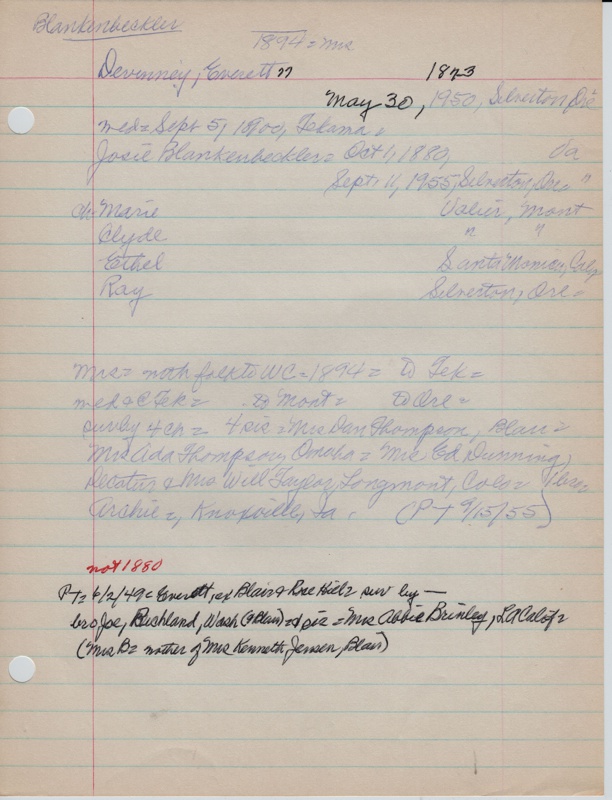 Blankenbeckler
1894 = Mrs
Devenney, Everett " 1873
May 30, 1950, Silverton, Ore
med = Sept 5, 1900, Tekama =
Josie Blankenbeckler = Oct 1, 1880, Va
Sept 11, 1955, Silverton, Ore = "
ch = Marie Valier, Mont
Clyde " "
Ethel Santa Monica, Cal,
Ray Silverton, Ore =
Mrs = with folk to WC = 1894 = to Tek =
med @ Tek = to Mont = to Ore =
surv by 4 ch = 4 sis = Mrs Dan Thompson, Blair =
Mrs Ada Thompson, Omaha = Mrs Ed Dunning,
Decatur & Mrs Will Taylor, Longmont, Colo = 1 bro =
Archie =, Knoxville, Ia. (PT 9/15/55)
not 1880
PT = 6/2/49 = Everett, ex Blair & Rose Hill = surv by —
bro Joe, Richland, Wash (& Blair) = & sis = Mrs Abbie Brinley, LA Calif =
(Mrs B = mother of Mrs Kenneth Jensen, Blair)